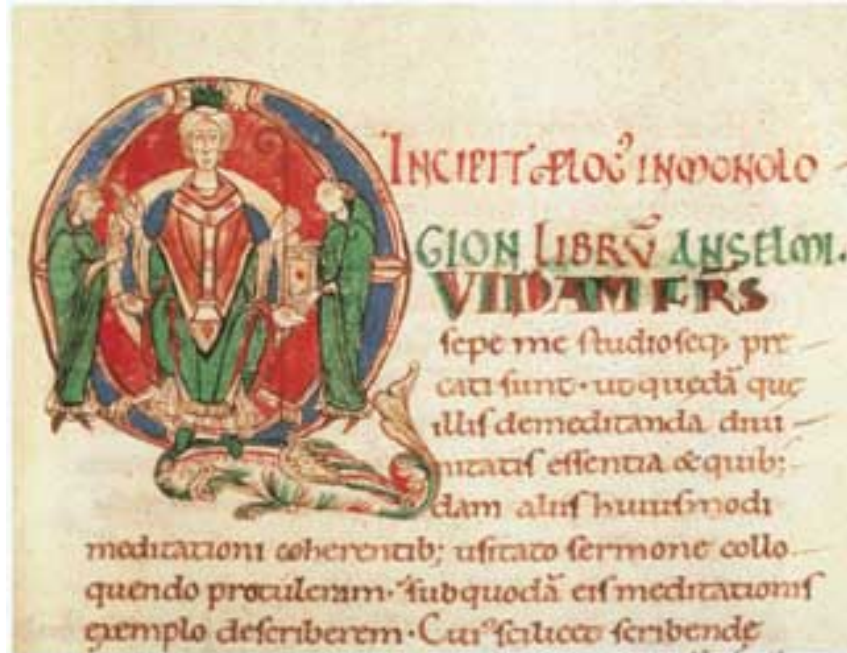 INCIPIT PLOG' IN MONOLO
GION LIBRŪ ANSELMI.
QUIDAM FRS
sepe me studioseq; pre
cati sunt. ut quedā que
illis de meditanda diui
nitatis essentia & quib;
dam aliis huiusmodi
meditationi coherentib; usitato sermone collo
quendo protuleram. sub quodā eis meditationis
exemplo describerem. Cui' scilicet scribende